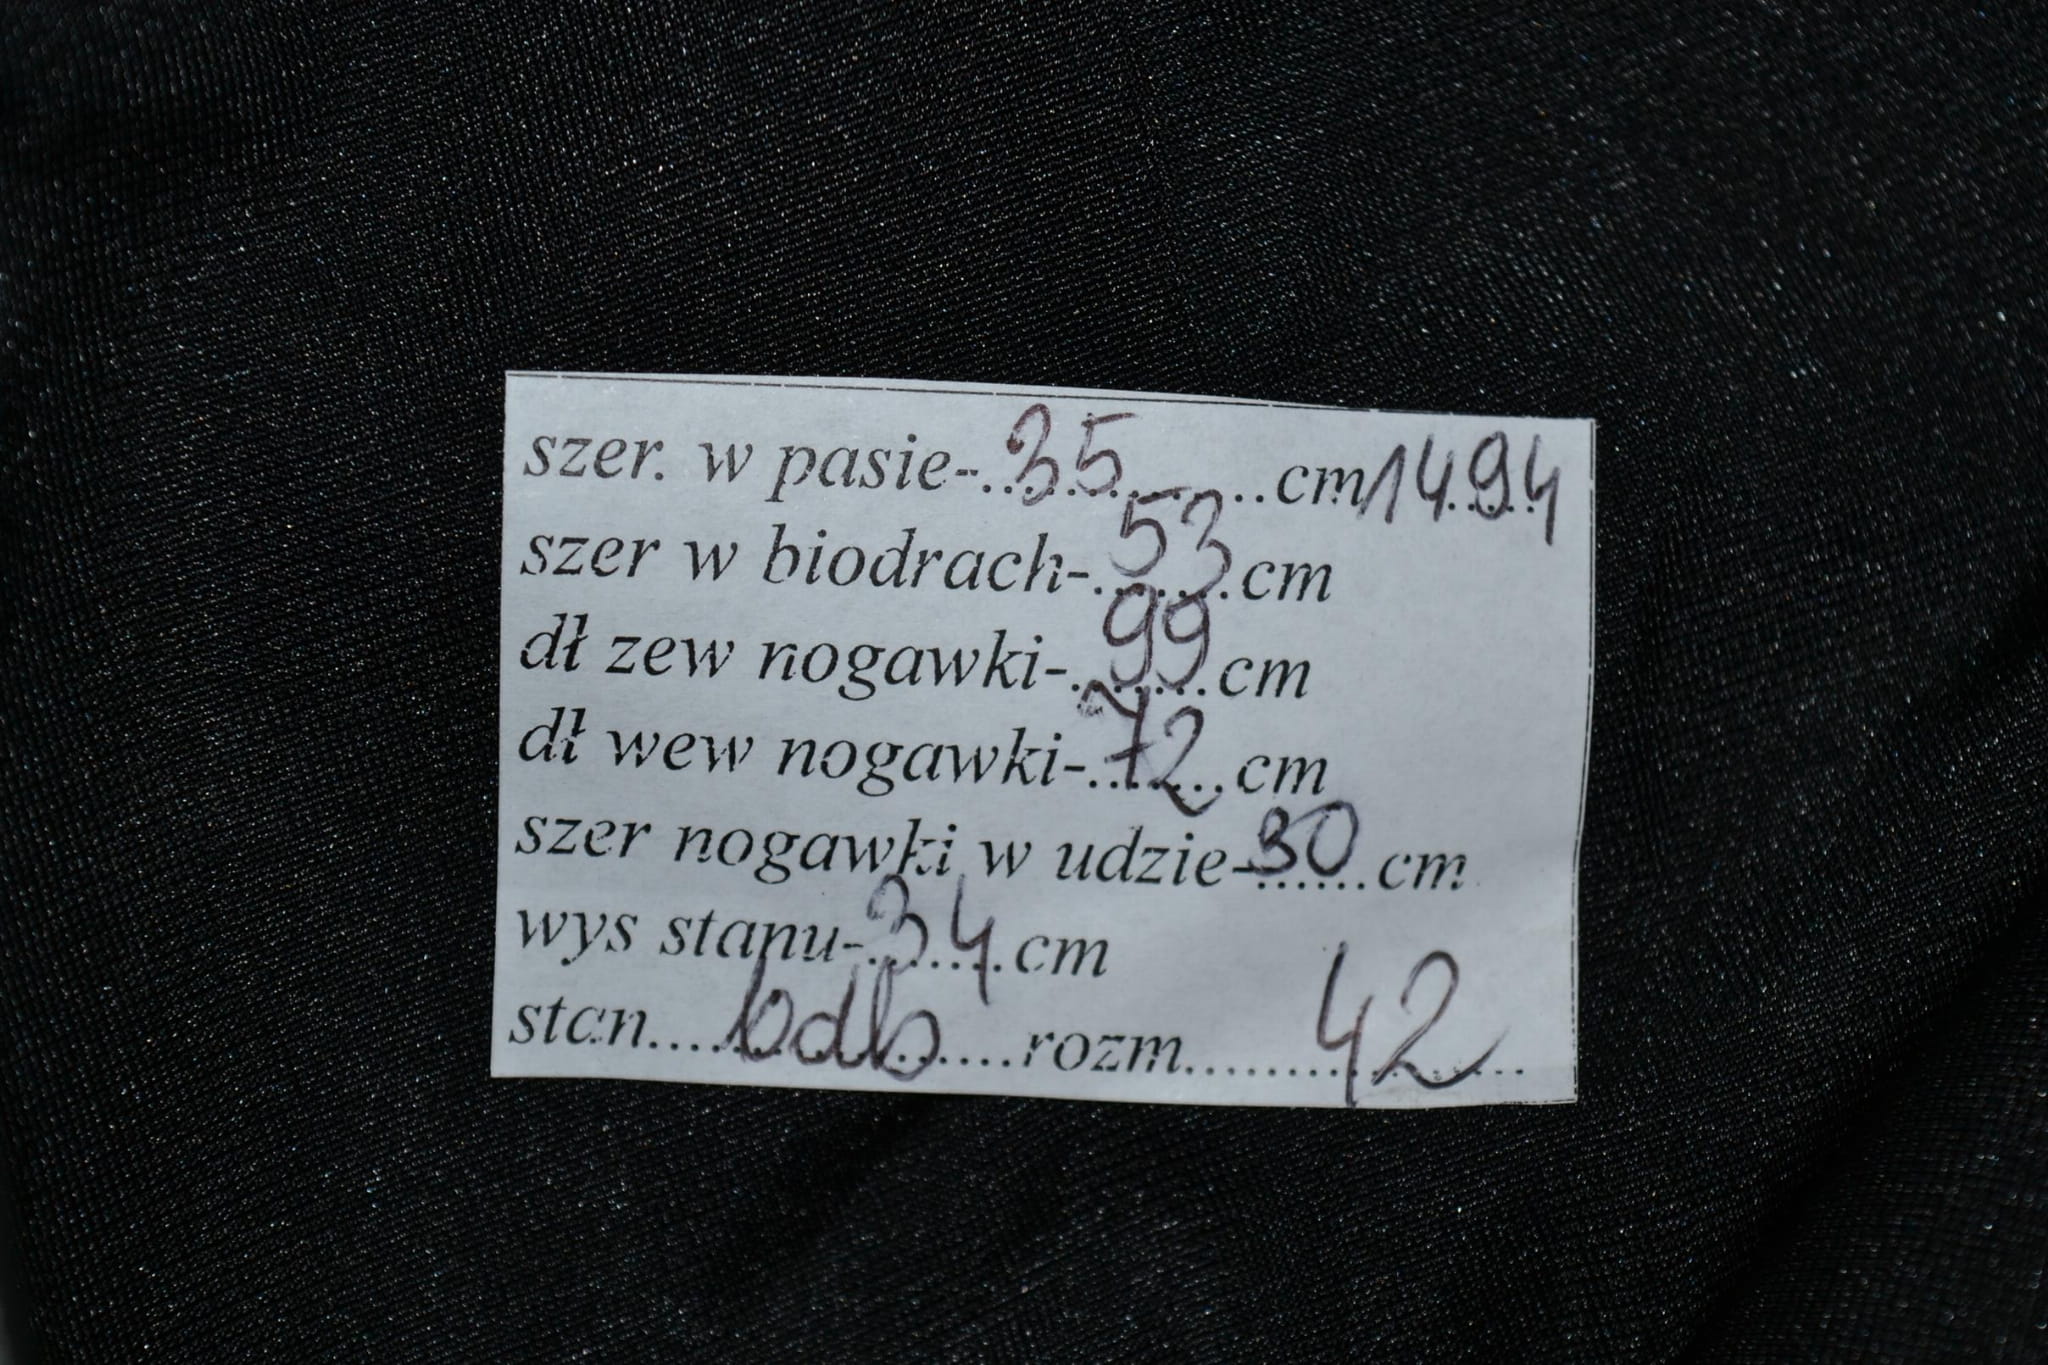 szer. w pasie-..35..........cm 1494
szer w biodrach-..53....cm
dł zew nogawki-..99....cm
dł wew nogawki-..72...cm
szer nogawki w udzie-30...cm
wys stanu-.34..cm
stan....bdb.....rozm.......42......